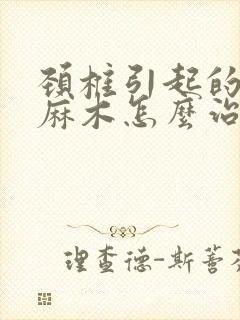 頚椎引起的
麻木怎麼治
理查德-斯蓄